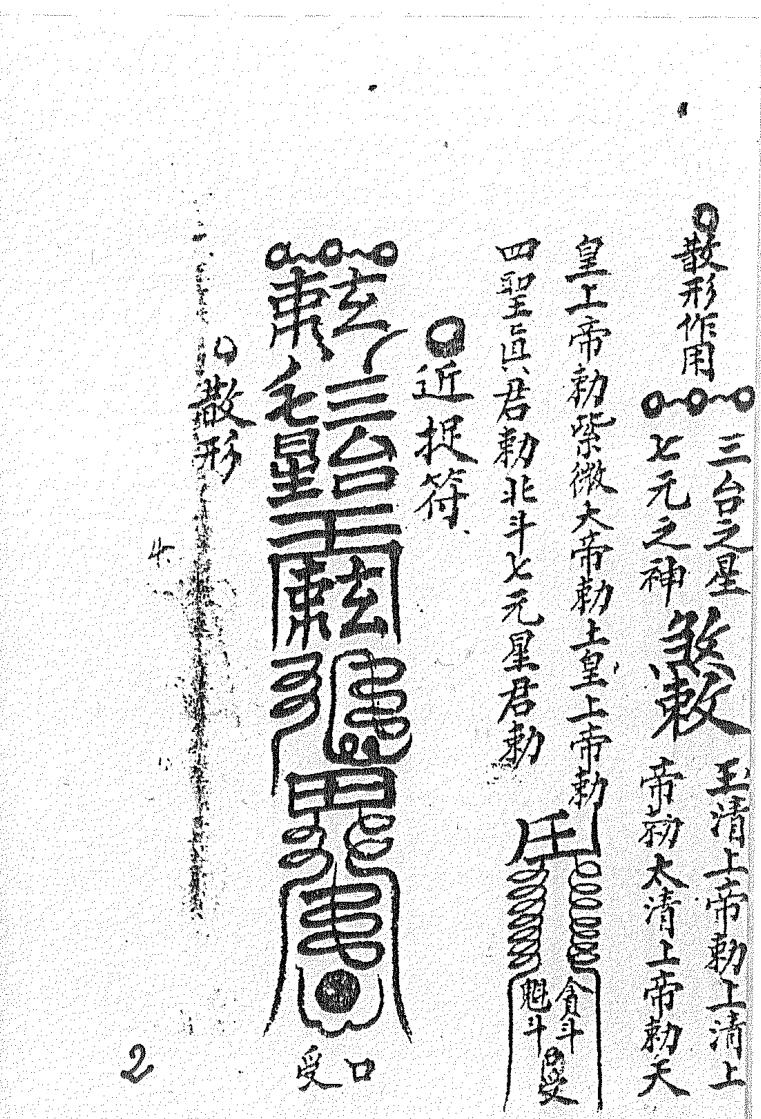 散形作用
三台之星
七元之神
煞敕
玉清上帝勅上清上
帝勅太清上帝勅天
皇上帝勅紫微大帝勅土皇上帝勅
四聖真君勅北斗七元星君勅
貪斗
魁斗
口受
近捉符
三台
星
口受
散形
2